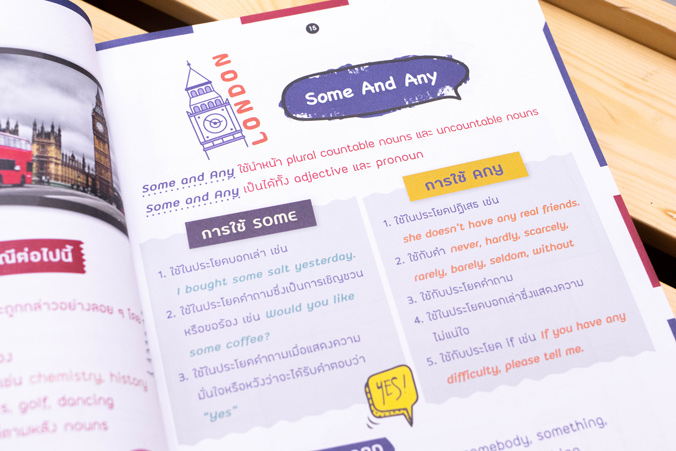 15
LONDON
Some And Any
Some and Any ใช้นำหน้า plural countable nouns และ uncountable nouns
Some and Any เป็นได้ทั้ง adjective และ pronoun
การใช้ SOME
1. ใช้ในประโยคบอกเล่า เช่น
I bought some salt yesterday.
2. ใช้ในประโยคคำถามซึ่งเป็นการเชิญชวน
หรือขอร้อง เช่น Would you like
some coffee?
3. ใช้ในประโยคคำถามเมื่อแสดงความ
มั่นใจหรือหวังว่าจะได้รับคำตอบว่า
"Yes"
YES!
การใช้ ANY
1. ใช้ในประโยคปฏิเสธ เช่น
she doesn't have any real friends.
2. ใช้กับคำ never, hardly, scarcely,
rarely, barely, seldom, without
3. ใช้กับประโยคคำถาม
4. ใช้ในประโยคบอกเล่าซึ่งแสดงความ
ไม่แน่ใจ
5. ใช้กับประโยค if เช่น If you have any
difficulty, please tell me.
somebody, something,
ณีต่อไปนี้
ะถูกกล่าวอย่างลอย ๆ โดย
อง
เช่น chemistry, history
s, golf, dancing
ตามหลัง nouns